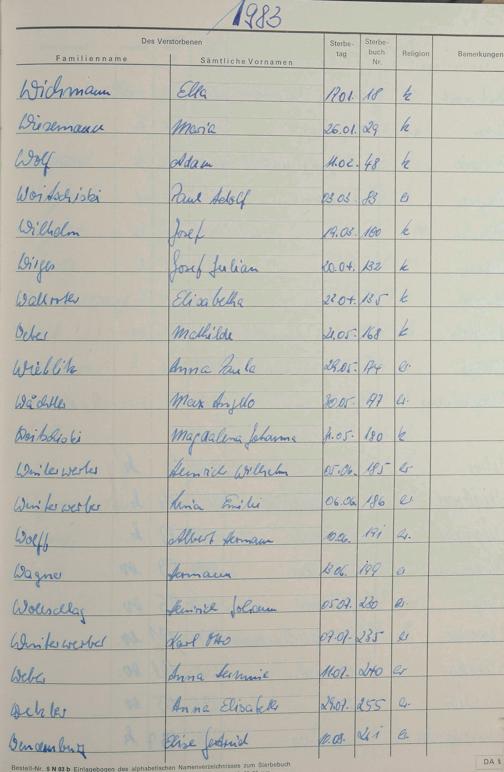 1983
Des Verstorbenen Sterbe- Sterbe-
Familienname Sämtliche Vornamen tag buch Nr. Religion Bemerkungen
Wichmann Elka 17.01. 18 k
Wiesemann Maria 26.01. 29 k
Wolf Adam 11.02. 48 k
Woitschiski Paul Adolf 03.03. 83 e
Wilhelm Josef 19.03. 100 k
Wirges Josef Julian 20.04. 132 k
Elisabetha 22.04. 135 k
Weber Mathilde 21.05. 168 k
Wieblitz Anna Paula 29.05. 174 e.
Wächtler Max 30.05. 177 e.
Woitschiski Magdalena Johanna 31.05. 180 k
Winterwerber Heinrich Wilhelm 05.06. 185 e
Winterwerber Anna Emilie 06.06. 186 e
Wolff Albert Hermann 10.06. 191 e.
Wagner Hermann 199 e
Wollschlag Heinrich Johann 05.07. 230 e.
Winterwerber Karl Otto 07.07. 235 e
Weber Anna Hermine 11.07. 240 e
Anna Elisabeth 29.07. 255 e.
Elise Gertrud e.
Bestell-Nr. S N 03 b Einlagebogen des alphabetischen Namenverzeichnisses zum Sterbebuch DA